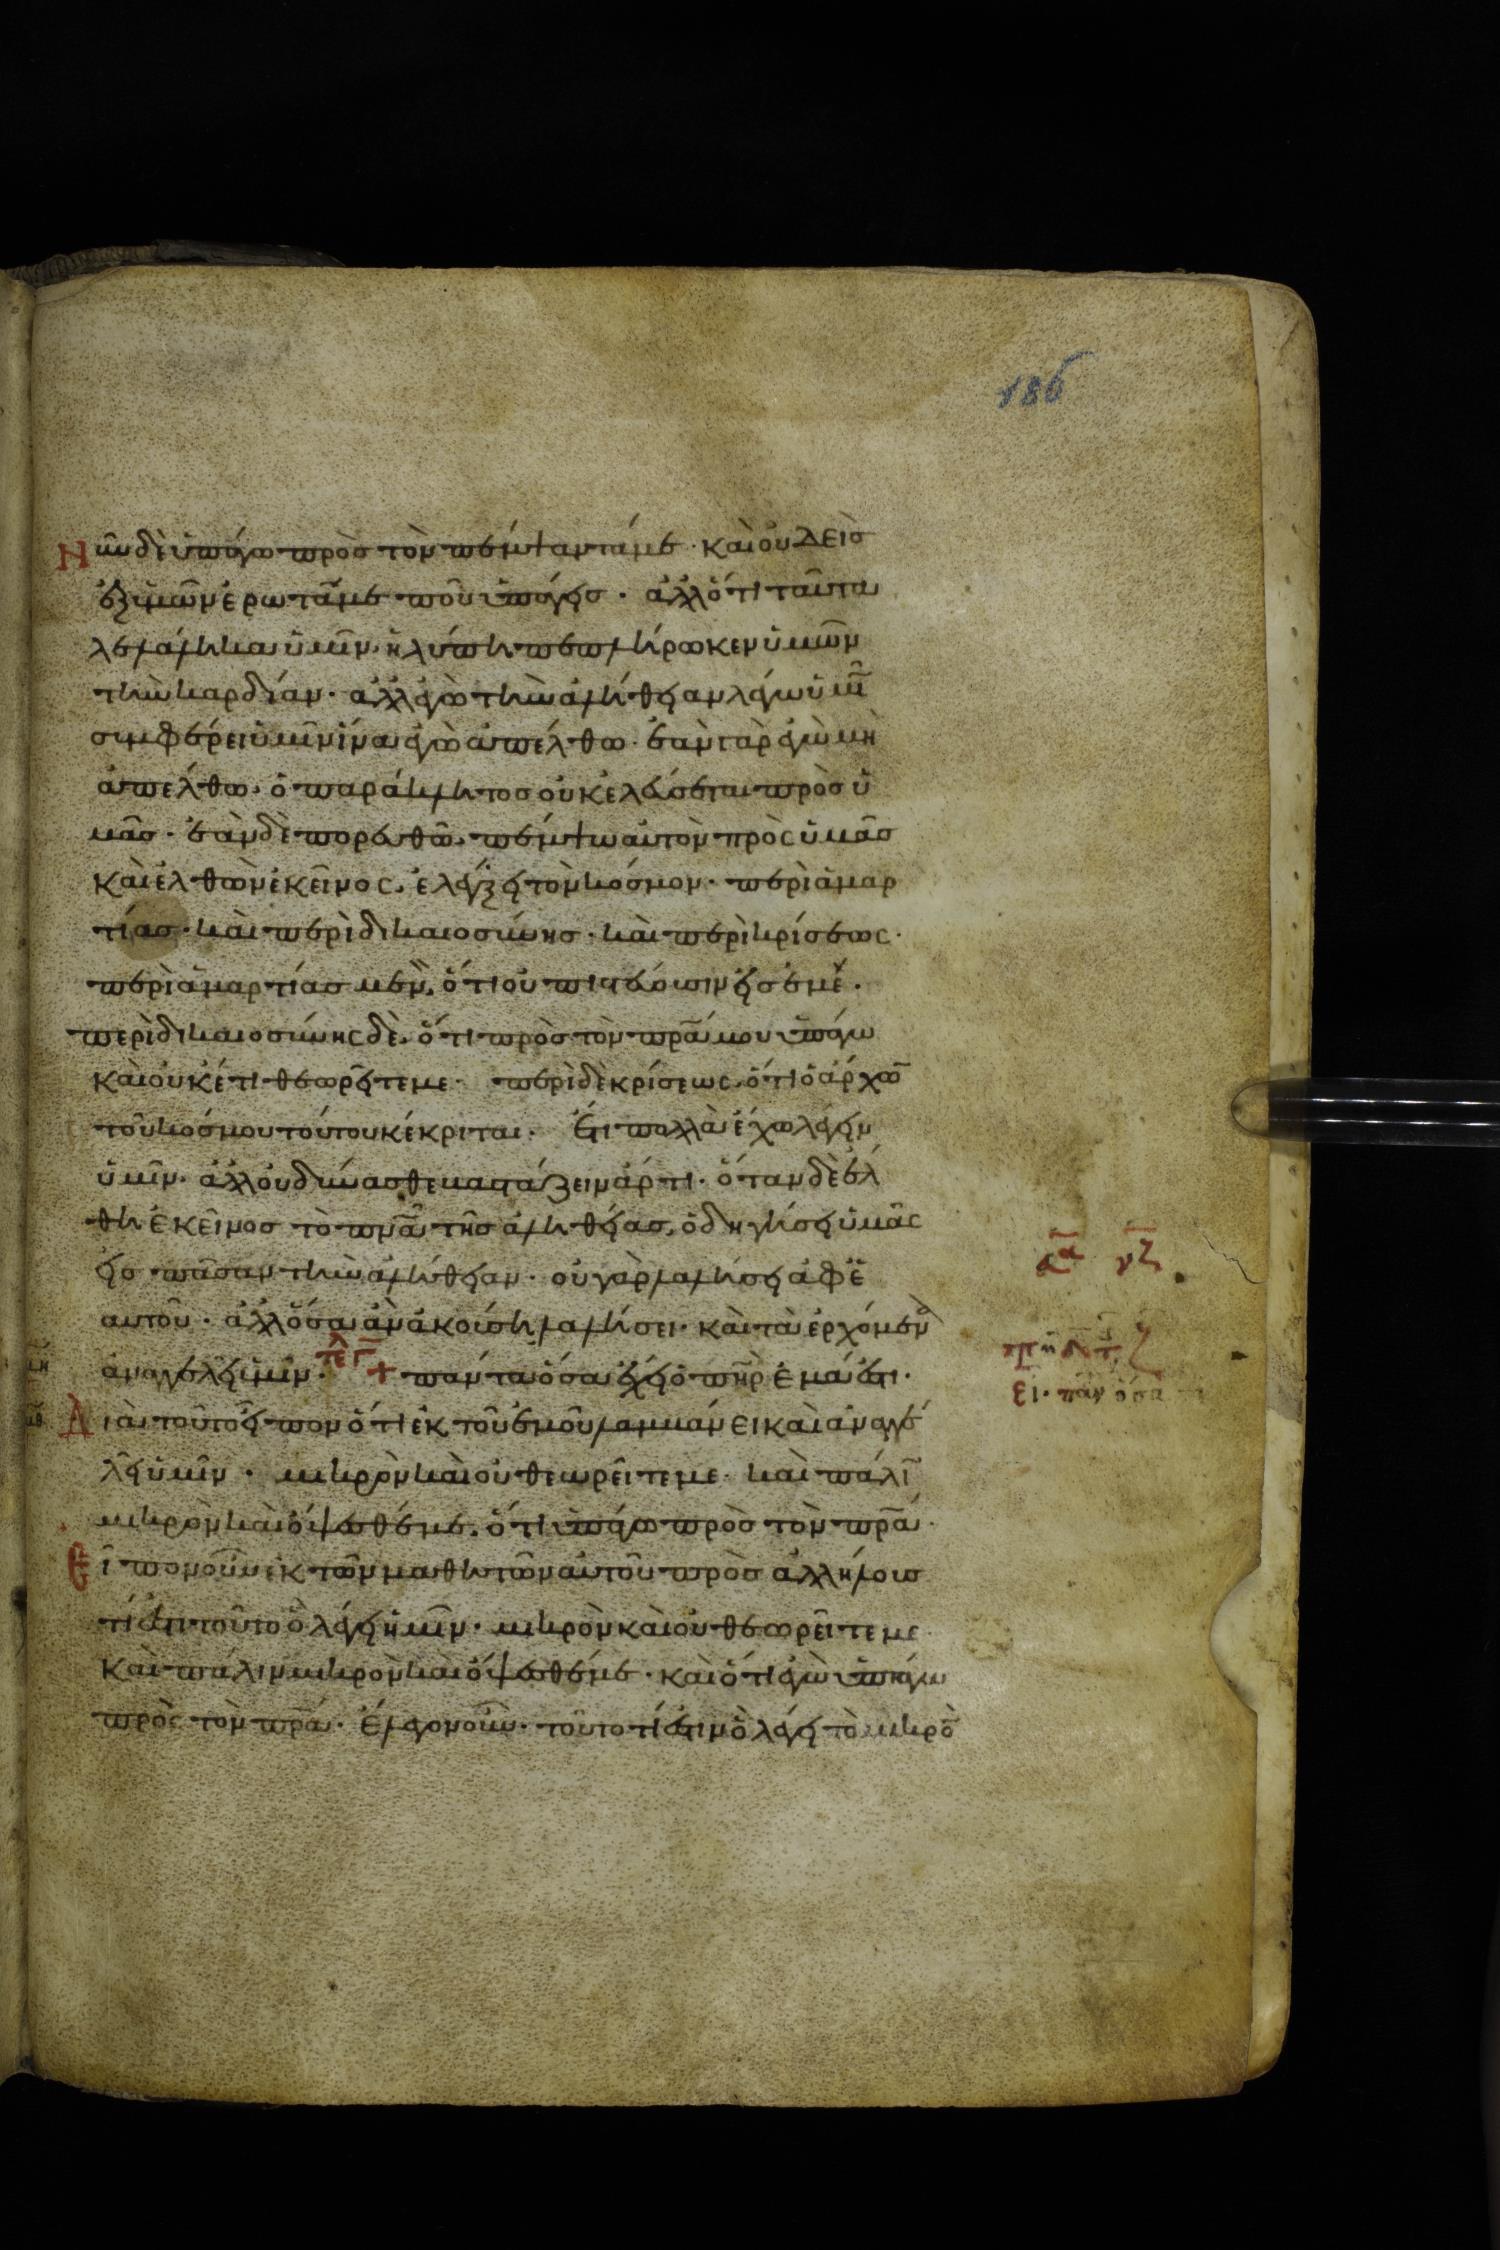 186
Νῦν δὲ ὑπάγω πρὸς τὸν πέμψαντά με· καὶ οὐδεὶς
ἐξ ὑμῶν ἐρωτᾶ με ποῦ ὑπάγεις· ἀλλ ὅτι ταῦτα
λελάληκα ὑμῖν· ἡ λύπη πεπλήρωκεν ὑμῶν
τὴν καρδίαν· ἀλλ ἐγὼ τὴν ἀλήθειαν λέγω ὑμῖ
συμφέρει ὑμῖν ἵνα ἐγὼ ἀπέλθω· ἐὰν γὰρ ἐγὼ μὴ
ἀπέλθω, ὁ παράκλητος οὐκ ἐλεύσεται πρὸς ὑ
μᾶς· ἐὰν δὲ πορευθῶ, πέμψω αὐτὸν πρὸς ὑμᾶς
καὶ ἐλθὼν ἐκεῖνος, ἐλέγξει τὸν κόσμον· περὶ ἁμαρ
τίας· καὶ περὶ δικαιοσύνης· καὶ περὶ κρίσεως·
περὶ ἁμαρτίας μὲν, ὅτι οὐ πιστεύουσιν εἰς ἐμέ·
περὶ δικαιοσύνης δὲ, ὅτι πρὸς τὸν πρα μου ὑπάγω
καὶ οὐκέτι θεωρεῖτε με· περὶ δὲ κρίσεως, ὅτι ὁ ἄρχω
τοῦ κόσμου τούτου κέκριται· Ἔτι πολλὰ ἔχω λέγειν
ὑμῖν· ἀλλ οὐ δύνασθε βαστάζειν ἄρτι· ὅταν δὲ ἔλ
θη ἐκεῖνος τὸ πνα τῆς ἀληθείας, ὁδηγήσει ὑμᾶς
εἰς πᾶσαν τὴν ἀλήθειαν· οὐ γὰρ λαλήσει ἀφ ἑ
αυτοῦ· ἀλλ ὅσα ἂν ἀκούση λαλήσει· καὶ τὰ ἐρχόμενα
ἀναγγελεῖ ὑμῖν· + πάντα ὅσα ἔχει ὁ πηρ ἐμά ἐστι·
Διὰ τοῦτο εἶπον ὅτι ἐκ τοῦ ἐμοῦ λαμβάνει καὶ ἀναγγε
λεῖ ὑμῖν· μικρὸν καὶ οὐ θεωρεῖτε με· καὶ πάλι
μικρὸν καὶ ὄψεσθέ με, ὅτι ὑπάγω πρὸς τὸν πρα·
Εἶπον οὖν ἐκ τῶν μαθητῶν αὐτοῦ πρὸς ἀλλήλους
τί ἐστι τοῦτο ὃ λέγει ἡμῖν· μικρὸν καὶ οὐ θεωρεῖτε με
καὶ πάλιν μικρὸν καὶ ὄψεσθέ με· καὶ ὅτι ἐγὼ ὑπάγω
πρὸς τὸν πρα· ἔλεγον οὖν· τοῦτο τί ἐστιν ὃ λέγει τὸ μικρὸ